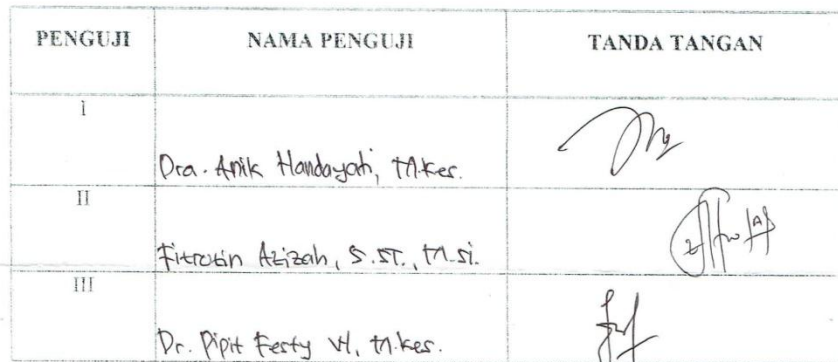 PENGUJI NAMA PENGUJI TANDA TANGAN
I
Dra. Anik Handayati, M.Kes.
II
Fitrotin Azizah, S.ST., M.Si.
III
Dr. Pipit Festy W, M.Kes.